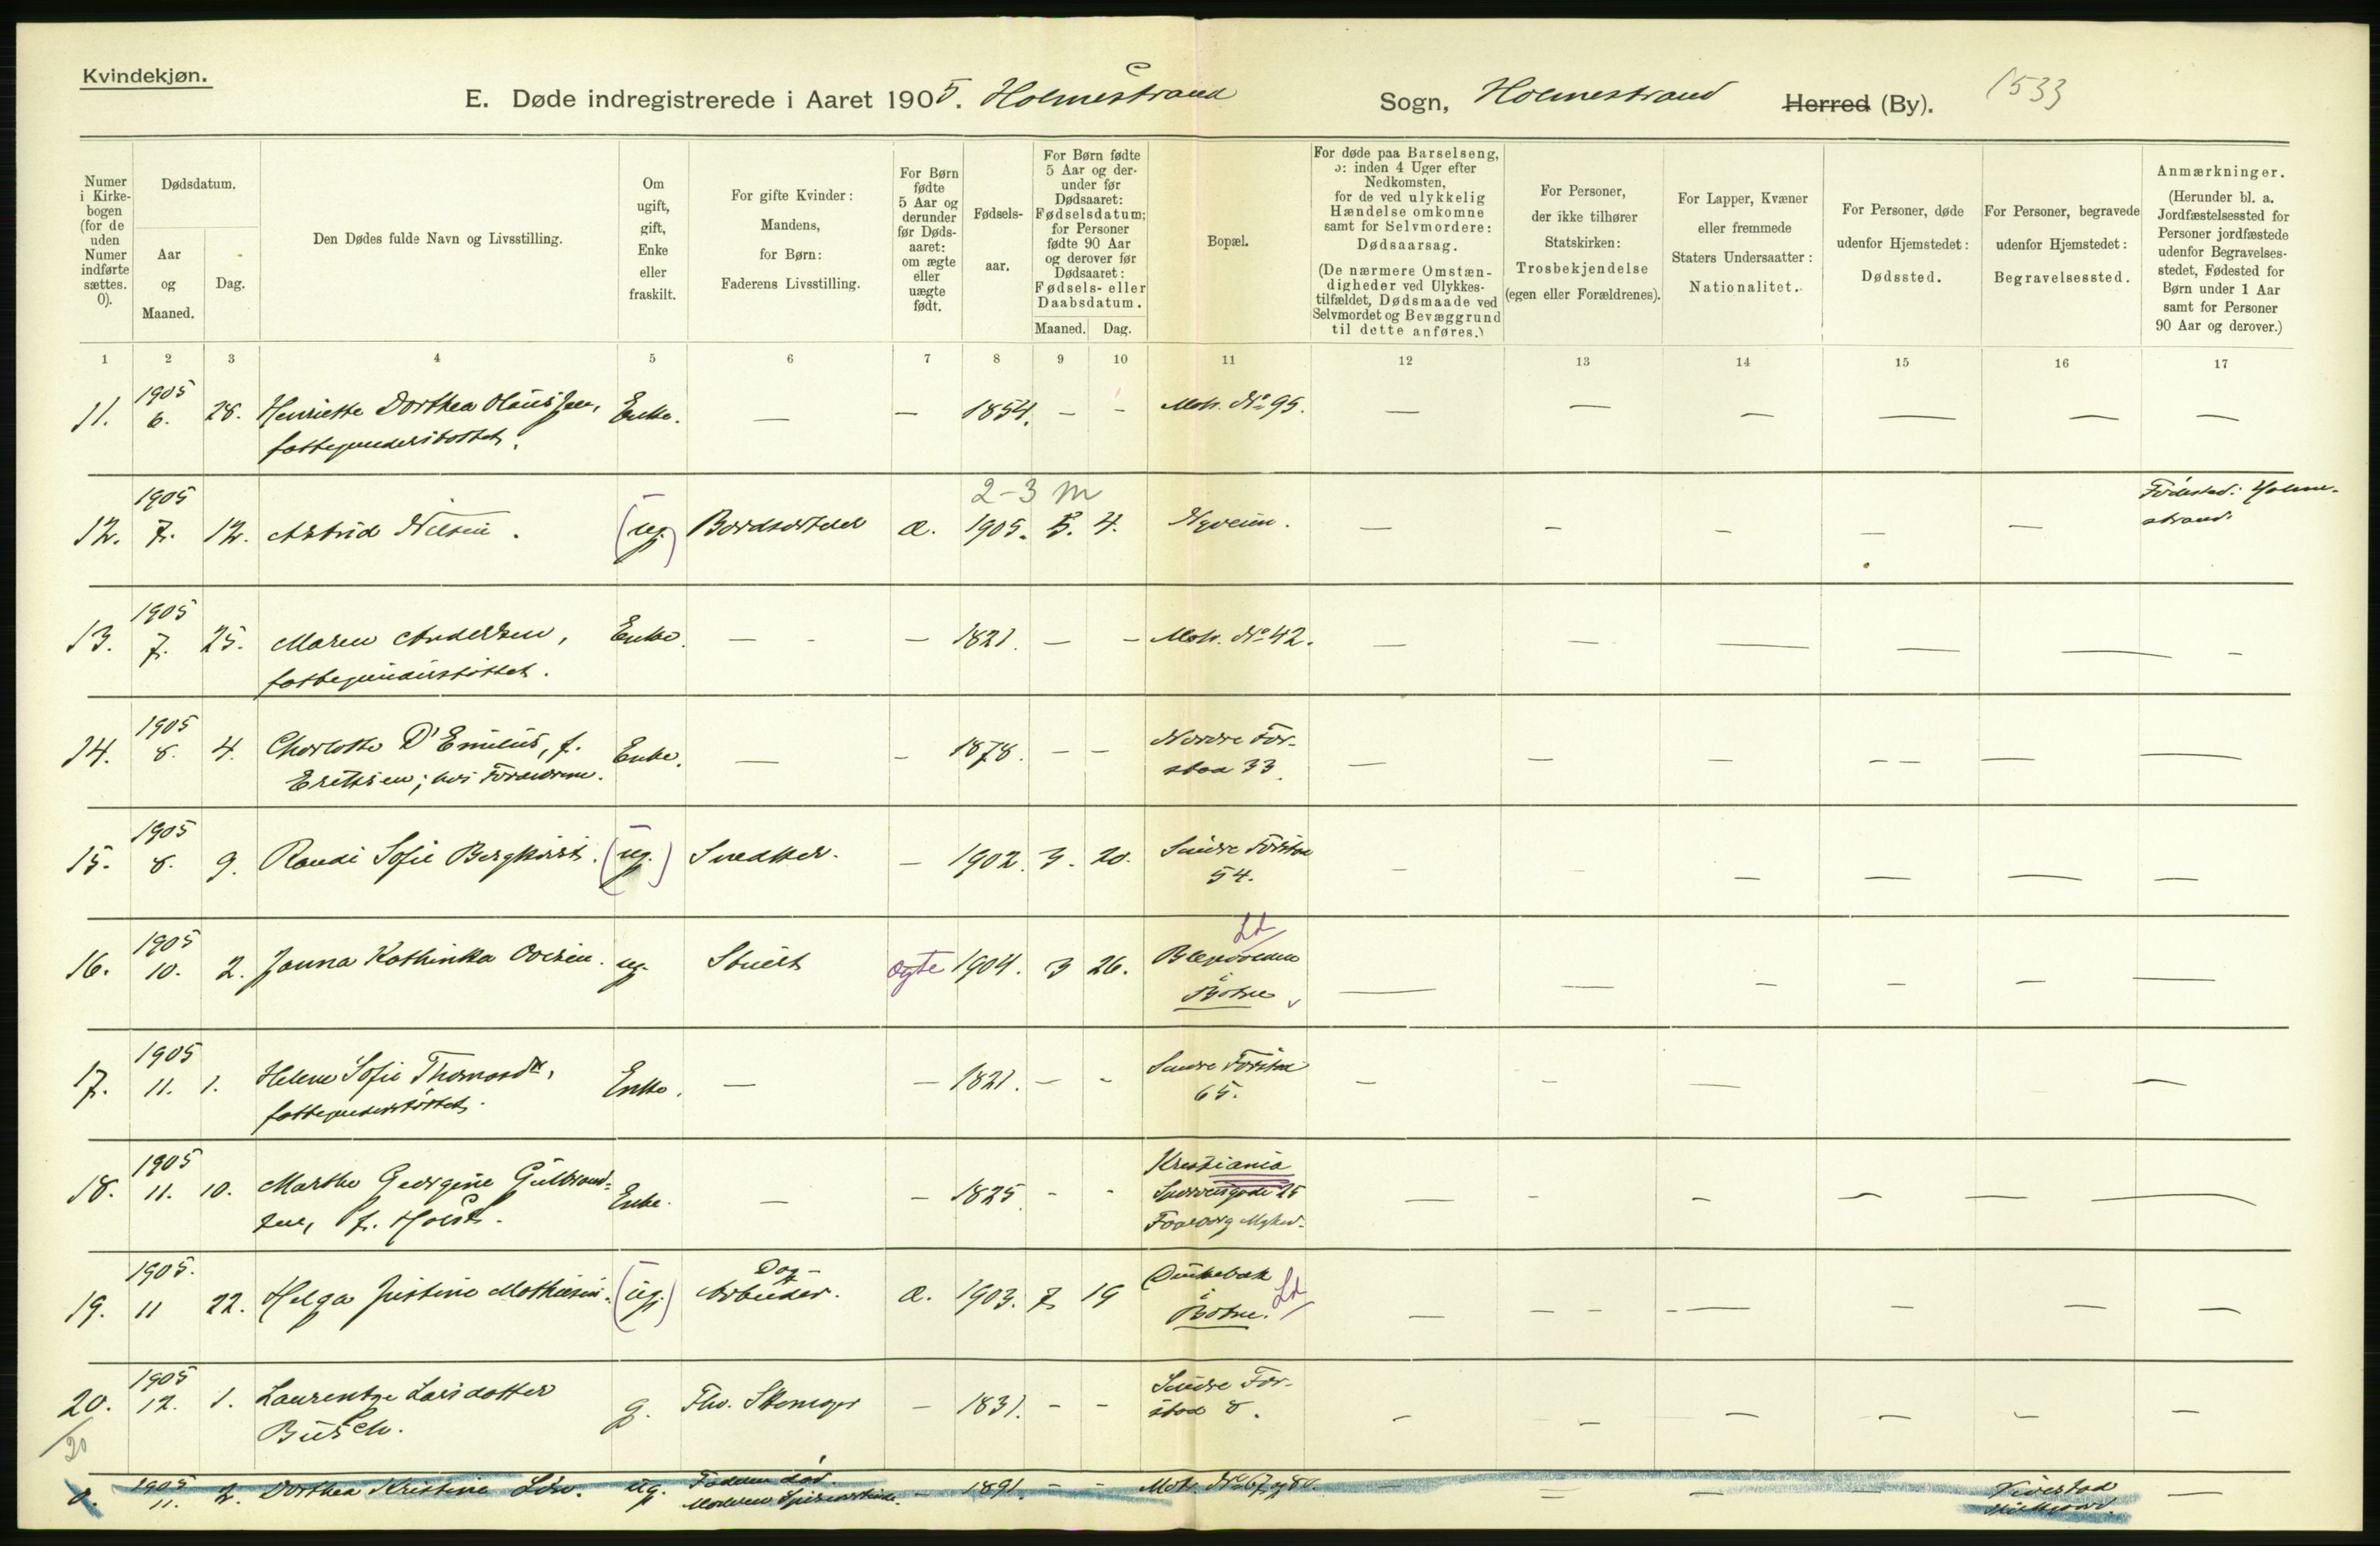 Kvindekjøn.
E. Døde indregistrerede i Aaret 1905. Holmestrand Sogn, Holmestrand Herred (By). 1533
Numer i Kirkebogen (for de uden Numer indførte sættes. 0).
Dødsdatum.
Aar og Maaned.
Dag.
Den Dødes fulde Navn og Livsstilling.
Om ugift, gift, Enke eller fraskilt.
For gifte Kvinder: Mandens, for Børn: Faderens Livsstilling.
For Børn fødte 5 Aar og derunder før Dødsaaret: om ægte eller uægte født.
Fødselsaar.
For Børn fødte 5 Aar og derunder før Dødsaaret: Fødselsdatum; for Personer fødte 90 Aar og derover før Dødsaaret: Fødsels- eller Daabsdatum.
Maaned. Dag.
Bopæl.
For døde paa Barselseng, ɔ: inden 4 Uger efter Nedkomsten, for de ved ulykkelig Hændelse omkomne samt for Selvmordere: Dødsaarsag.
(De nærmere Omstændigheder ved Ulykkestilfældet, Dødsmaade ved Selvmordet og Bevæggrund til dette anføres.)
For Personer, der ikke tilhører Statskirken: Trosbekjendelse (egen eller Forældrenes).
For Lapper, Kvæner eller fremmede Staters Undersaatter: Nationalitet.
For Personer, døde udenfor Hjemstedet: Dødssted.
For Personer, begravede udenfor Hjemstedet: Begravelsessted.
Anmærkninger.
(Herunder bl. a. Jordfæstelsessted for Personer jordfæstede udenfor Begravelsesstedet, Fødested for Børn under 1 Aar samt for Personer 90 Aar og derover.)
1 2 3 4 5 6 7 8 9 10 11 12 13 14 15 16 17
11. 1905 6. 28. Henriette Dorthea Olaussen, Enke. — — 1854. — — Matr. No 95. — — — — — —
fattigunderstøttet.
2-3 m
12. 1905 7. 12. Astrid Nilsen. (ug.) Bordsorterer æ. 1905. 5. 4. Nyveien. — — — — — Fødested: Holmestrand.
13. 1905 7. 25. Maren Andersen, Enke. — — — 1821. — — Matr. No 42. — — — — — —
fattigunderstøttet.
14. 1905 8. 4. Charlotte D'Emilius, f. Enke. — — 1878. — — Nordre Forstad 33. — — — — — — —
Eriksen; hos Forældrene.
15. 1905 8. 9. Randi Sofie Bergkvist. (ug.) Snedker. — 1902. 3. 20. Søndre Forstad 54. — — — — — —
16. 1905 10. 2. Janna Kathinka Ovesen. ug. Stuert ægte 1904. 3 26. i Botne Ld — — — — — —
17. 1905 11. 1. Helene Sofie Thomasdtr, Enke. — — 1821. — — Søndre Forstad 65. — — — —
fattigunderstøttet.
18. 1905 11. 10. Marthe Georgine Gulbrandsen, f. Holst. Enke. — — 1825. — — Kristiania 25 — — — — — —
19. 1905. 11 22. Helga Justine Mathiesen. (ug.) Dag-Arbeider. æ. 1903. 7. 19 i Botne. Ld — — — — — — —
20. 1905 12. 1. Laurentze Larsdatter Busch. g. Fhv. Skomager — 1831. — — Søndre Forstad 8. — — — — — —
20
0. 1905 11. 2. Dorthea Kristine ug. Faderen død Moderen — 1891. — — Matr. No — — — — —